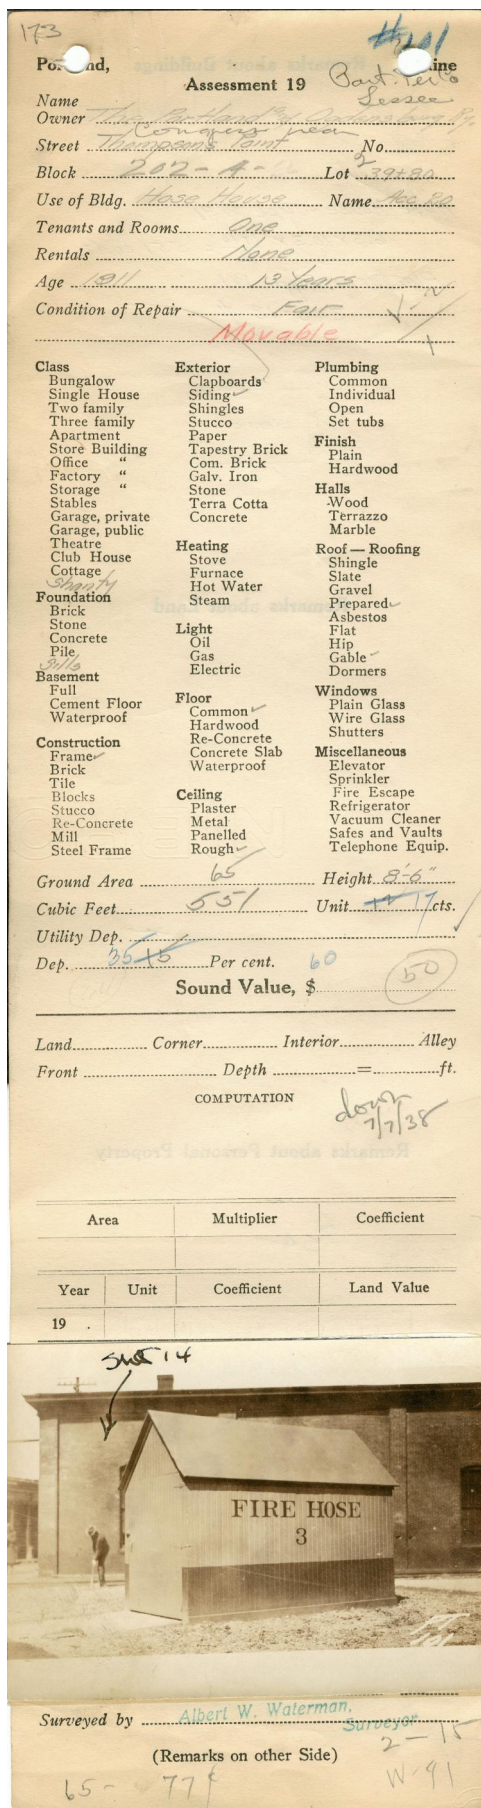 173
#101
Portland, Maine
Assessment 19
Port. Ter Co
Lessee
Name
Owner The Portland & Ogdensburg Ry.
Conquers near
Street Thompson's Point No.
Block 202-A- Lot 2 39+80
Use of Bldg. Hose House Name Acc. 20
Tenants and Rooms One
Rentals None
Age 1911 13 Years
Condition of Repair Fair
Movable
Class
Bungalow
Single House
Two family
Three family
Apartment
Store Building
Office "
Factory "
Storage "
Stables
Garage, private
Garage, public
Theatre
Club House
Cottage
Shanty
Foundation
Brick
Stone
Concrete
Pile
Sills
Basement
Full
Cement Floor
Waterproof
Construction
Frame ✓
Brick
Tile
Blocks
Stucco
Re-Concrete
Mill
Steel Frame
Exterior
Clapboards
Siding ✓
Shingles
Stucco
Paper
Tapestry Brick
Com. Brick
Galv. Iron
Stone
Terra Cotta
Concrete
Heating
Stove
Furnace
Hot Water
Steam
Light
Oil
Gas
Electric
Floor
Common ✓
Hardwood
Re-Concrete
Concrete Slab
Waterproof
Ceiling
Plaster
Metal
Panelled
Rough ✓
Plumbing
Common
Individual
Open
Set tubs
Finish
Plain
Hardwood
Halls
Wood
Terrazzo
Marble
Roof — Roofing
Shingle
Slate
Gravel
Prepared ✓
Asbestos
Flat
Hip
Gable ✓
Dormers
Windows
Plain Glass
Wire Glass
Shutters
Miscellaneous
Elevator
Sprinkler
Fire Escape
Refrigerator
Vacuum Cleaner
Safes and Vaults
Telephone Equip.
Ground Area 65 Height 8'-6"
Cubic Feet 551 Unit 17 cts.
Utility Dep.
Dep. 35 Per cent. 60
Sound Value, $ 50
Land Corner Interior Alley
Front Depth = ft.
COMPUTATION
down
7/7/38
Area Multiplier Coefficient
Year Unit Coefficient Land Value
19 .
14
FIRE HOSE
3
Surveyed by Albert W. Waterman,
Surveyor
(Remarks on other Side)
2-15
W-91
65- 77¢